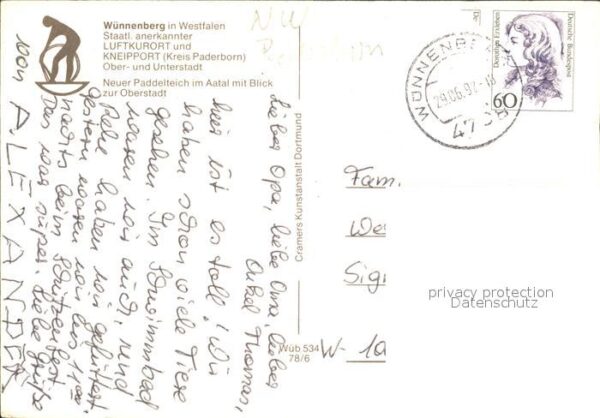 Wünnenberg in Westfalen
Staatl. anerkannter
LUFTKURORT und
KNEIPPORT (Kreis Paderborn)
Ober- und Unterstadt
Neuer Paddelteich im Aatal mit Blick
zur Oberstadt
NW
Paderborn
WÜNNENBERG
29.06.92-18
4798
Dorothea Erxleben
Deutsche Bundespost
60
Lieber Opa, liebe Oma, lieber
Onkel Thomas,
hier ist es toll! Wir
haben schon viele Tiere
gesehen. Im Schwimmbad
waren wir auch, und
Rehe haben wir gefüttert.
gestern waren wir bis 11
nachts beim Schützenfest
Das war super. Liebe Grüße
von ALEXANDER
Cramers Kunstanstalt Dortmund
Wüb 534
78/6
Fam.
We
Sig
W- 1
privacy protection
Datenschutz